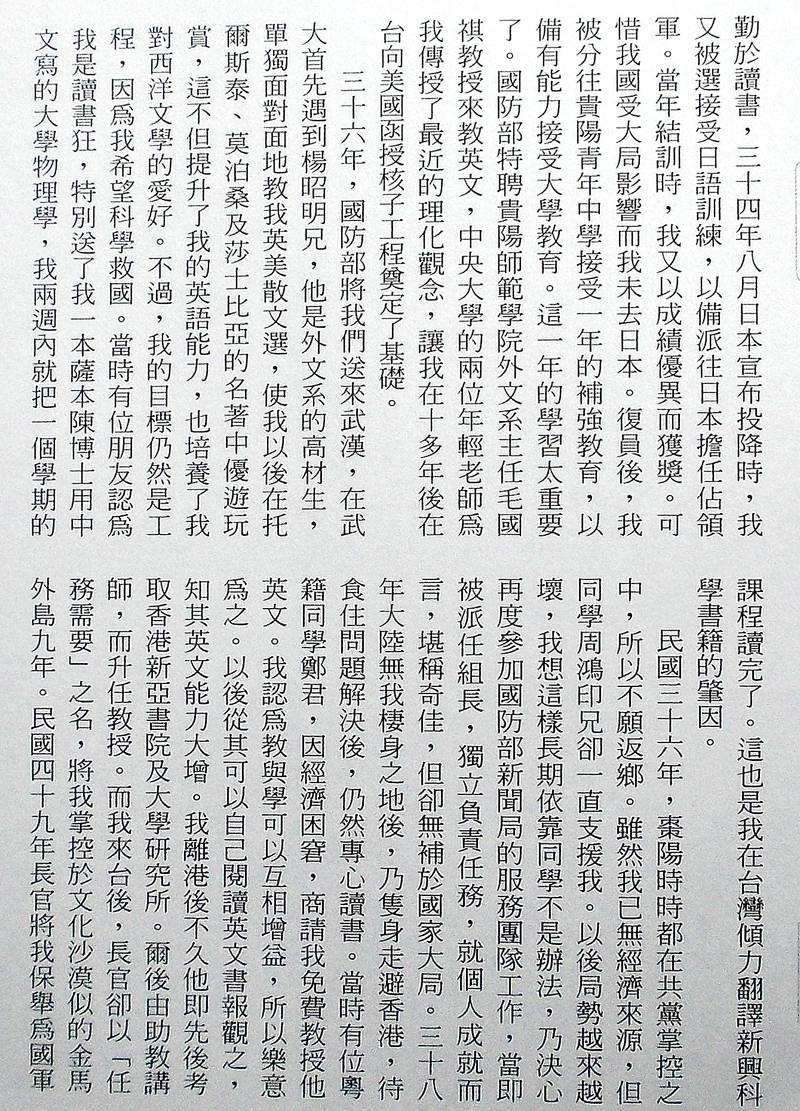 勤於讀書，三十四年八月日本宣布投降時，我
又被選接受日語訓練，以備派往日本擔任佔領
軍。當年結訓時，我又以成績優異而獲獎。可
惜我國受大局影響而我未去日本。復員後，我
被分往貴陽青年中學接受一年的補強教育，以
備有能力接受大學教育。這一年的學習太重要
了。國防部特聘貴陽師範學院外文系主任毛國
祺教授來教英文，中央大學的兩位年輕老師爲
我傳授了最近的理化觀念，讓我在十多年後在
台向美國函授核子工程奠定了基礎。
三十六年，國防部將我們送來武漢，在武
大首先遇到楊昭明兄，他是外文系的高材生，
單獨面對面地教我英美散文選，使我以後在托
爾斯泰、莫泊桑及莎士比亞的名著中優遊玩
賞，這不但提升了我的英語能力，也培養了我
對西洋文學的愛好。不過，我的目標仍然是工
程，因爲我希望科學救國。當時有位朋友認爲
我是讀書狂，特別送了我一本薩本陳博士用中
文寫的大學物理學，我兩週內就把一個學期的
課程讀完了。這也是我在台灣傾力翻譯新興科
學書籍的肇因。
民國三十六年，棗陽時時都在共黨掌控之
中，所以不願返鄉。雖然我已無經濟來源，但
同學周鴻印兄卻一直支援我。以後局勢越來越
壞，我想這樣長期依靠同學不是辦法，乃決心
再度參加國防部新聞局的服務團隊工作，當即
被派任組長，獨立負責任務，就個人成就而
言，堪稱奇佳，但卻無補於國家大局。三十八
年大陸無我棲身之地後，乃隻身走避香港，待
食住問題解決後，仍然專心讀書。當時有位粵
籍同學鄭君，因經濟困窘，商請我免費教授他
英文。我認爲教與學可以互相增益，所以樂意
爲之。以後從其可以自己閱讀英文書報觀之，
知其英文能力大增。我離港後不久他即先後考
取香港新亞書院及大學研究所。爾後由助教講
師，而升任教授。而我來台後，長官卻以「任
務需要」之名，將我掌控於文化沙漠似的金馬
外島九年。民國四十九年長官將我保舉爲國軍